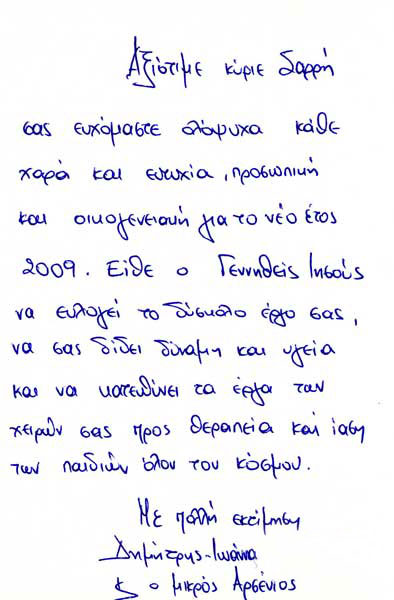 Αξιότιμε κύριε Σαρρή
σας ευχόμαστε ολόψυχα κάθε
χαρά και ευτυχία, προσωπική
και οικογενειακή για το νέο έτος
2009. Είθε ο Γεννηθείς Ιησούς
να ευλογεί το δύσκολο έργο σας,
να σας δίδει δύναμη και υγεία
και να κατευθύνει τα έργα των
χειρών σας προς θεραπεία και ίαση
των παιδιών όλου του κόσμου.
Με πολλή εκτίμηση
Δημήτρης-Ιωάννα
& ο μικρός Αρσένιος